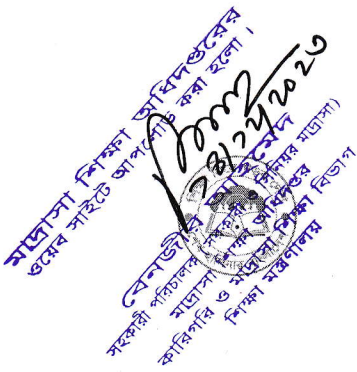 মাদ্রাসা শিক্ষা অধিদপ্তরের
ওয়েব সাইটে আপলোড করা হলো।
বেনজীর আহমেদ
সহকারী পরিচালক
মাদ্রাসা শিক্ষা অধিদপ্তর
কারিগরি ও মাদ্রাসা শিক্ষা বিভাগ
শিক্ষা মন্ত্রণালয়